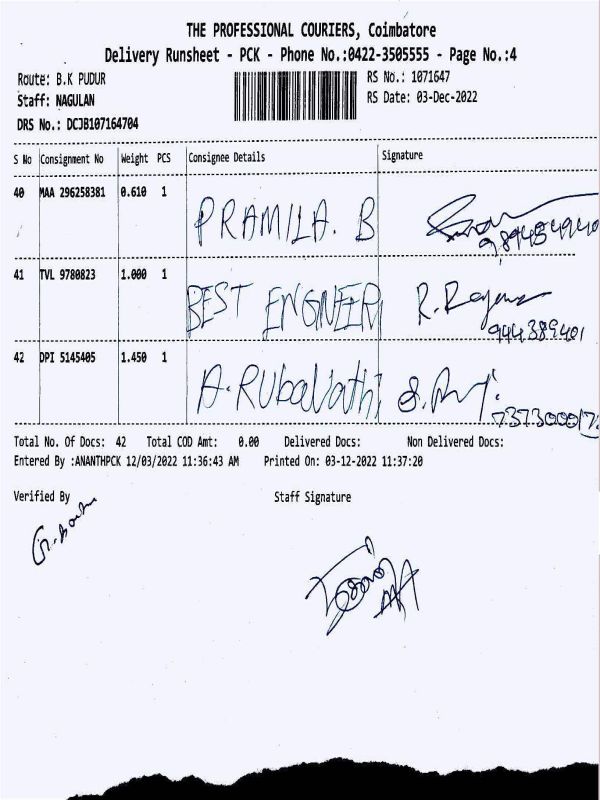 THE PROFESSIONAL COURIERS, Coimbatore
Delivery Runsheet - PCK - Phone No.:0422-3505555 - Page No.:4
Route: B.K PUDUR RS No.: 1071647
Staff: NAGULAN RS Date: 03-Dec-2022
DRS No.: DCJB107164704
S No Consignment No Weight PCS Consignee Details Signature
40 MAA 296258381 0.610 1 PRAMILA. B
41 TVL 9780823 1.000 1 BEST ENGNEER R.
944389401
42 DPI 5145405 1.450 1 A. Rubavathi
Total No. Of Docs: 42 Total COD Amt: 0.00 Delivered Docs: Non Delivered Docs:
Entered By :ANANTHPCK 12/03/2022 11:36:43 AM Printed On: 03-12-2022 11:37:20
Verified By Staff Signature